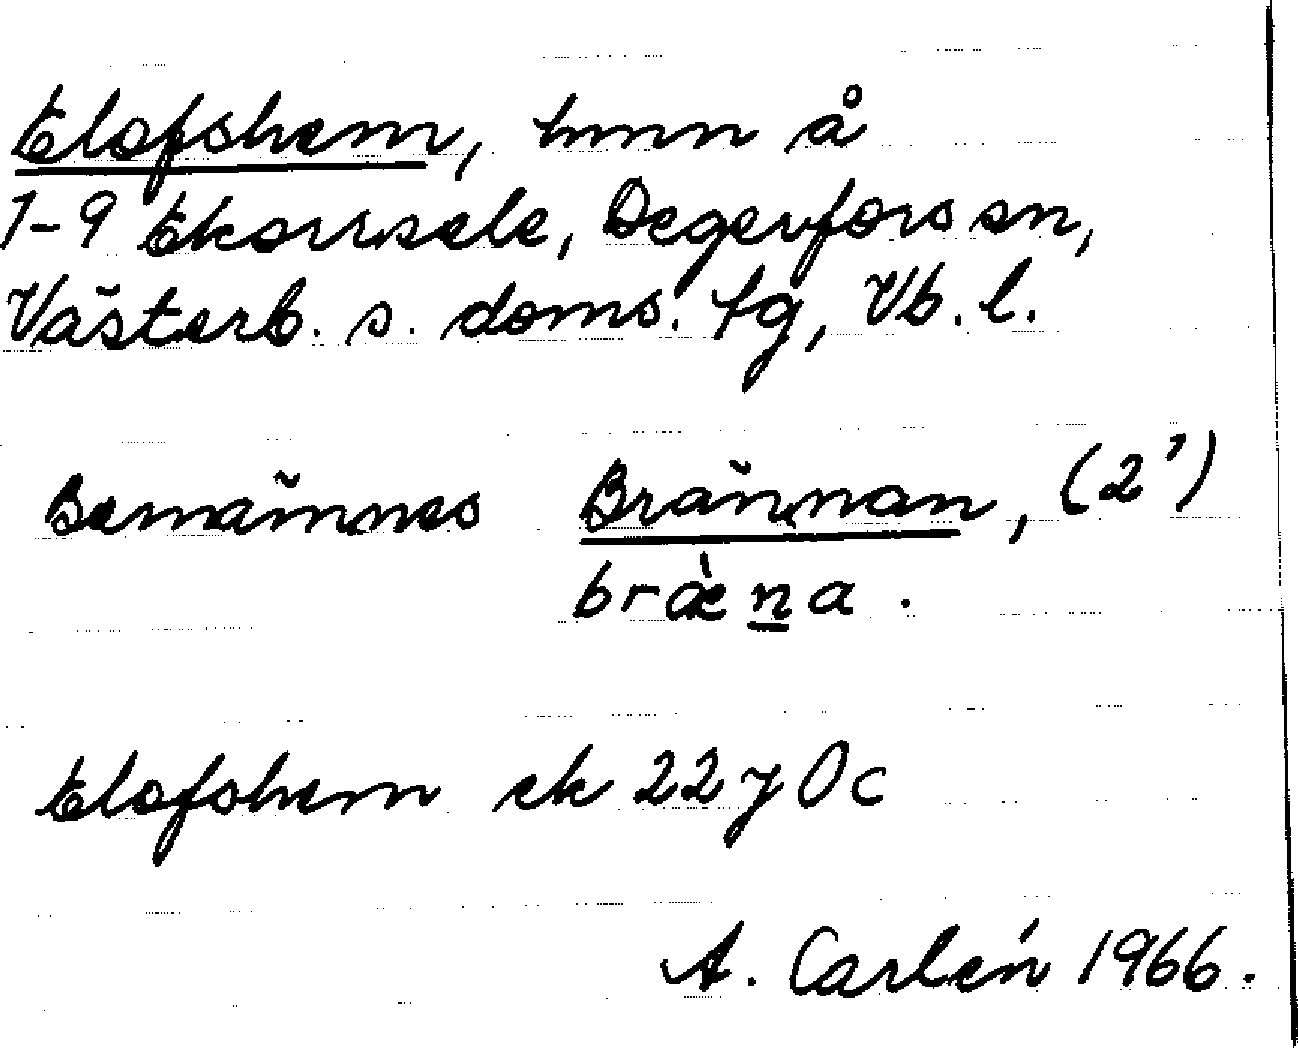 Elofshem, hmn å
1-9 Ekorrsele, Degerfors sn,
Västerb. s. doms. tg, Vb. l.
Benämnes Brännan, (2')
bræ̀na.
Elofshem ek 22 y 0 c
A. Carlén 1966.